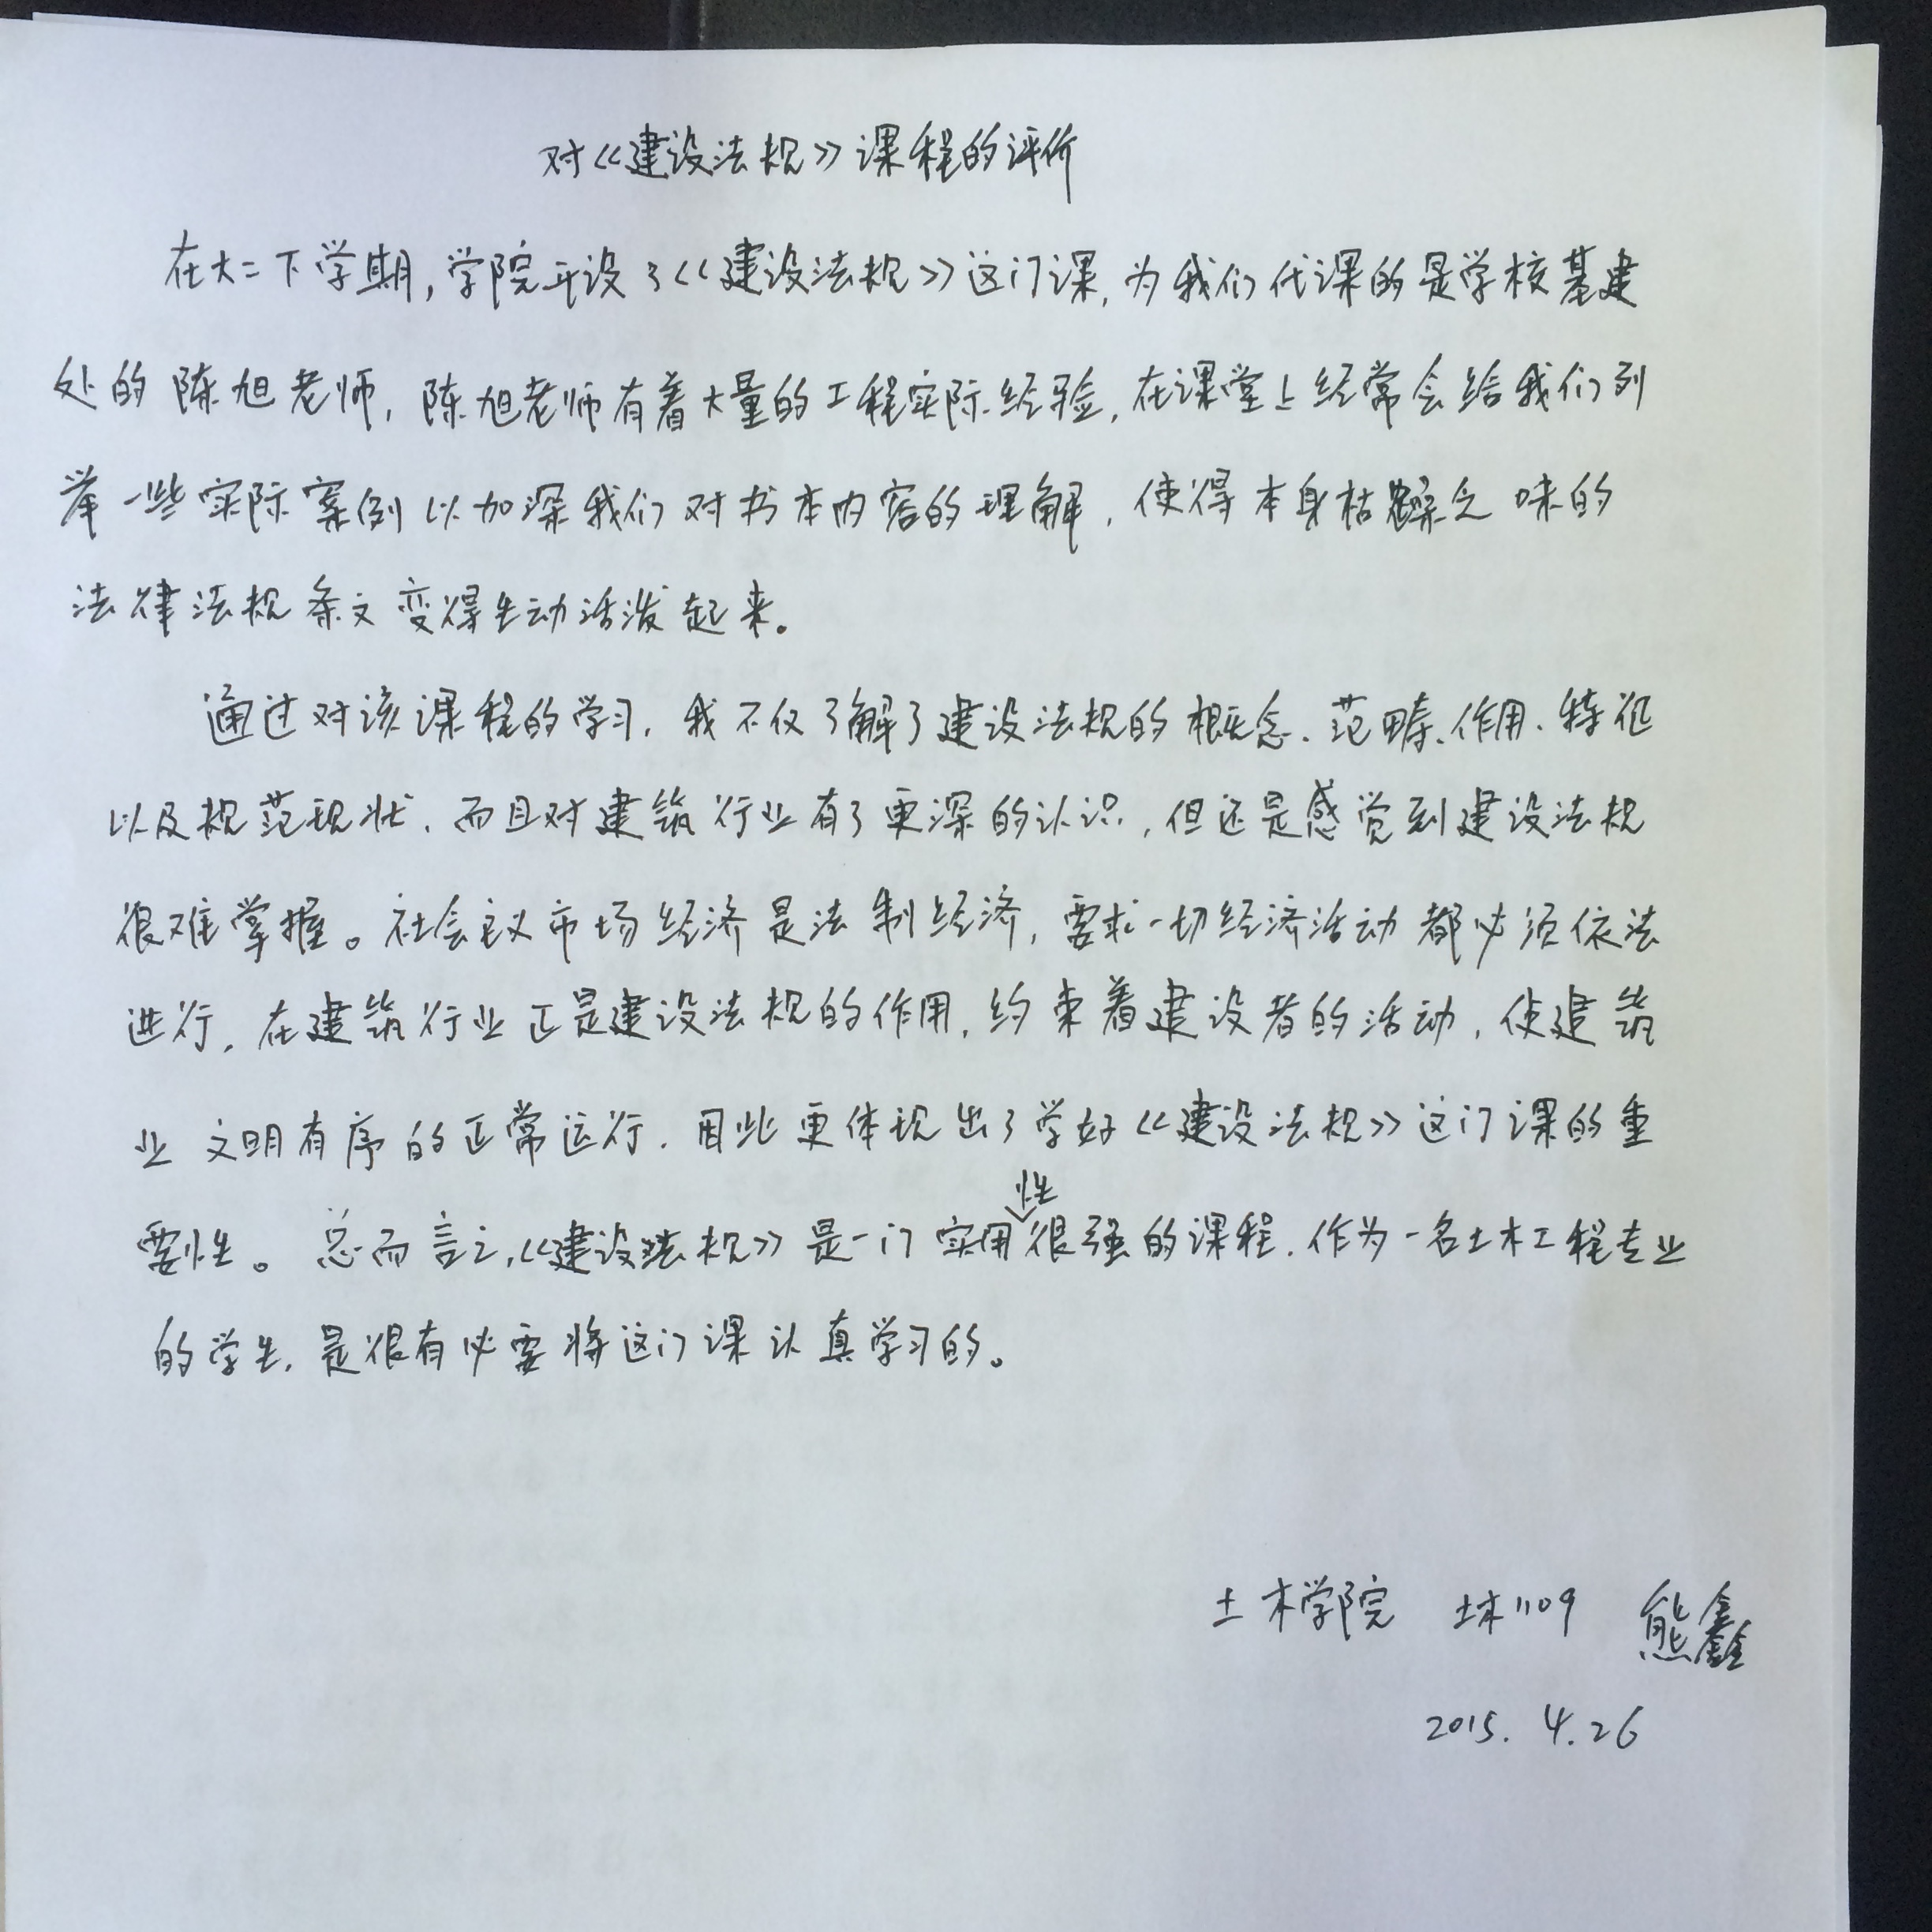 对《建设法规》课程的评价
在大二下学期，学院开设了《建设法规》这门课，为我们代课的是学校基建
处的陈旭老师，陈旭老师有着大量的工程实际经验，在课堂上经常会给我们列
举一些实际案例以加深我们对书本内容的理解，使得本身枯燥乏味的
法律法规条文变得生动活泼起来。
通过对该课程的学习，我不仅了解了建设法规的概念、范畴、作用、特征
以及规范现状，而且对建筑行业有了更深的认识，但还是感觉到建设法规
很难掌握。社会主义市场经济是法制经济，要求一切经济活动都必须依法
进行，在建筑行业正是建设法规的作用，约束着建设者的活动，使建筑
业文明有序的正常运行，因此更体现出了学好《建设法规》这门课的重
要性。总而言之，《建设法规》是一门实用性很强的课程，作为一名土木工程专业
的学生，是很有必要将这门课认真学习的。
土木学院 土木1109 熊鑫
2015.4.26